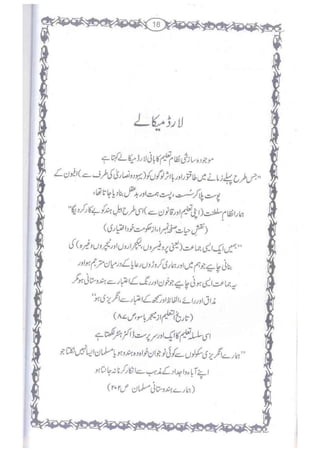 18
لارڈ میکالے
"موجودہ سازشی نظام تعلیم کا بانی لارڈ میکالے کہتا ہے
"جس طرح پہلے زمانے میں طاقتور اور بااثر لوگوں کو (یہود و نصاریٰ کی طرف سے) افیون کے
پوست پلا کر سُست، پست ہمت اور بدعقل بنا دیا جاتا تھا،
ہمارا نظام سلطنت (اپنی تعلیم اور قانون سے) اسی طرح اہل ہند کو بے کار کر دیگا"
(نقش حیات صفحہ نمبر ا از حکومت خود اختیاری)
"ہمیں ایک ایسی جماعت (یعنی پروفیسروں، لیکچراروں اور ٹیچروں وغیرہ) کی
بنانی چاہیے جو ہم میں اور ہماری کروڑوں رعایا کے درمیان مترجم ہو اور
یہ جماعت ایسی ہونی چاہیے جو خون اور رنگ کے اعتبار سے ہندوستانی ہو مگر
مذاق اور رائے، الفاظ اور سمجھ کے اعتبار سے انگریزی ہو"
(تاریخ التعلیم از میجر باسو ص ۸۷)
اسی سلسلہ تعلیم کا ایک اور سرپرست ڈاکٹر ہنٹر لکھتا ہے
"ہمارے انگریزی سکولوں سے کوئی نوجوان خواہ وہ ہندو ہو یا مسلمان ایسا نہیں نکلتا جو
اپنے آباء و اجداد کے مذہب سے انکار کرنا نہ جانتا ہو
(ہمارے ہندوستانی مسلمان ص ۲۰۲)